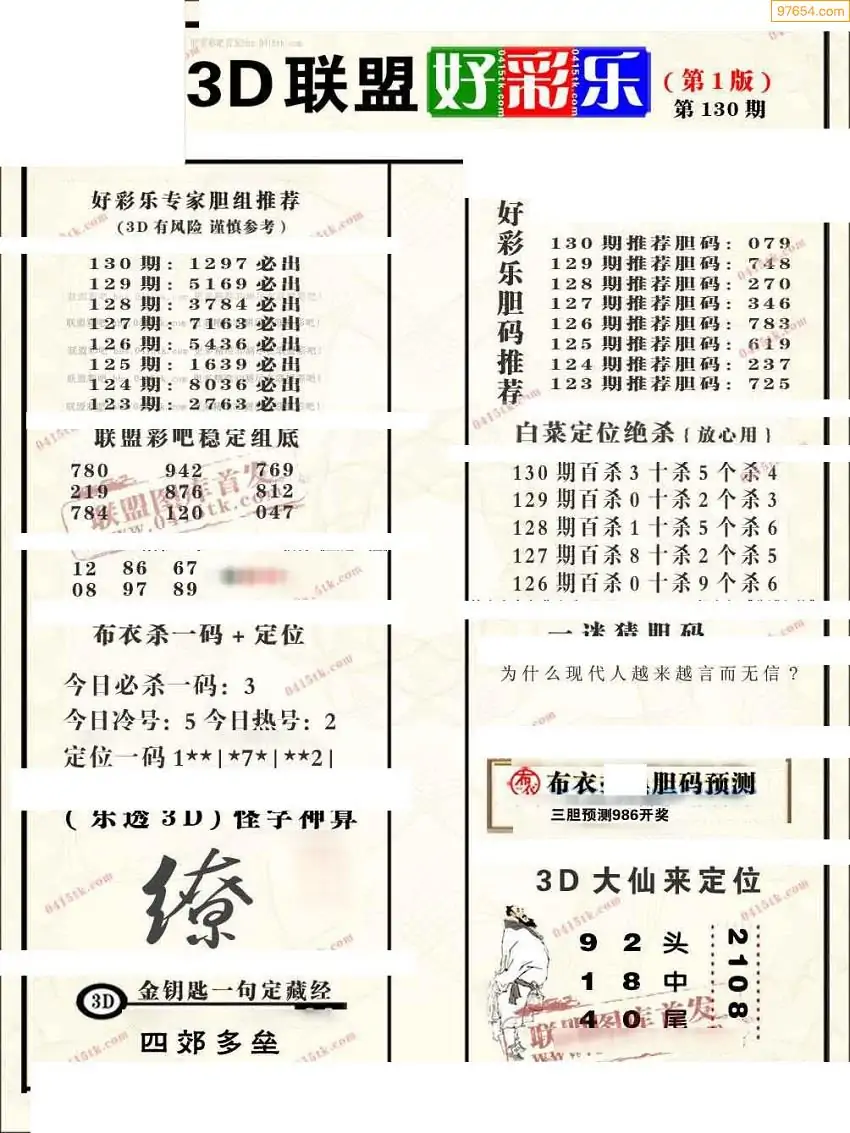 97654.com
3D联盟好彩乐
(第1版)
第130期
好彩乐专家胆组推荐
(3D有风险 谨慎参考)
130期:1297必出
129期:5169必出
128期:3784必出
127期:7163必出
126期:5436必出
125期:1639必出
124期:8036必出
123期:2763必出
联盟彩吧稳定组底
780 942 769
219 876 812
784 120 047
12 86 67
08 97 89
布衣杀一码+定位
今日必杀一码:3
今日冷号:5 今日热号:2
定位一码1**|*7*|**2|
(乐透3D)怪字神算
缭
3D
金钥匙一句定藏经
四郊多垒
好彩乐胆码推荐
130期推荐胆码:079
129期推荐胆码:748
128期推荐胆码:270
127期推荐胆码:346
126期推荐胆码:783
125期推荐胆码:619
124期推荐胆码:237
123期推荐胆码:725
白菜定位绝杀{放心用}
130期百杀3十杀5个杀4
129期百杀0十杀2个杀3
128期百杀1十杀5个杀6
127期百杀8十杀2个杀5
126期百杀0十杀9个杀6
一迷猜胆码
为什么现代人越来越言而无信?
布衣
胆码预测
三胆预测986开奖
3D大仙来定位
9 2 头
1 8 中
4 0 尾
2108
联盟图库首发
www.0415tk.com
0415tk.com